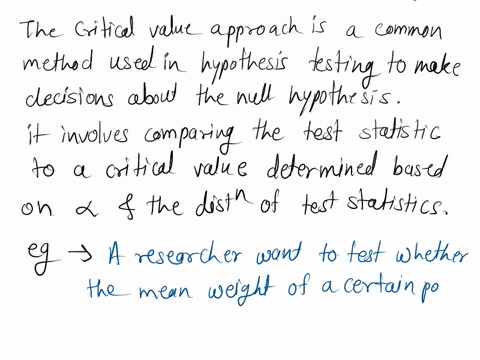 The Critical value approach is a common
method used in hypothesis testing to make
decisions about the null hypothesis.
it involves comparing the test statistic
to a critical value determined based
on α & the distⁿ of test statistics.
eg → A researcher want to test whether
the mean weight of a certain po